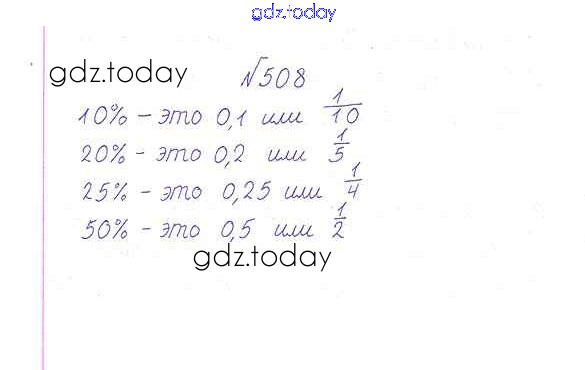 gdz.today
gdz.today
№508
10% – это 0,1 или 1/10
20% – это 0,2 или 1/5
25% – это 0,25 или 1/4
50% – это 0,5 или 1/2
gdz.today